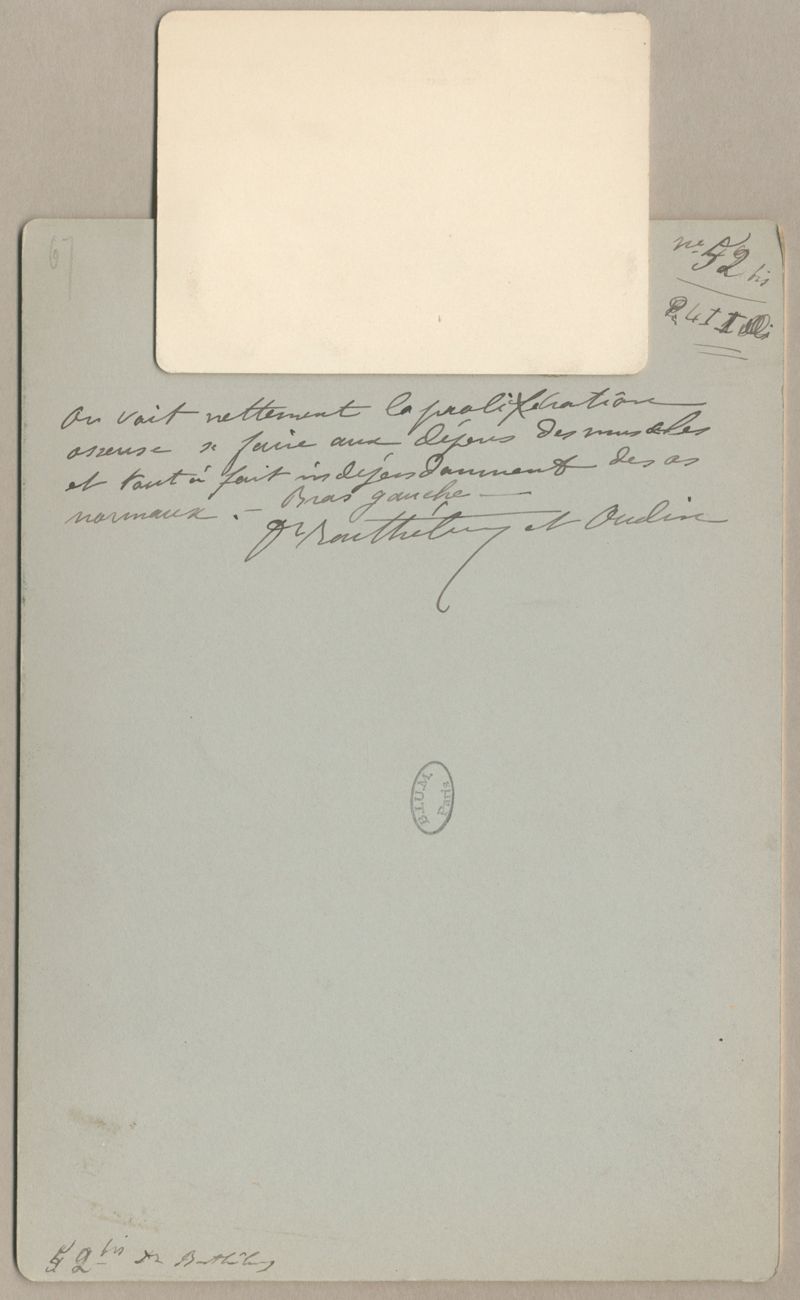 67
no 52 bis
On voit nettement la prolifération
osseuse se faire aux dépens des muscles
et tout à fait indépendamment des os
normaux. – Bras gauche –
Dr Barthélemy et Oudin
B.I.U.M.
Paris
52 bis Dr Barthélemy